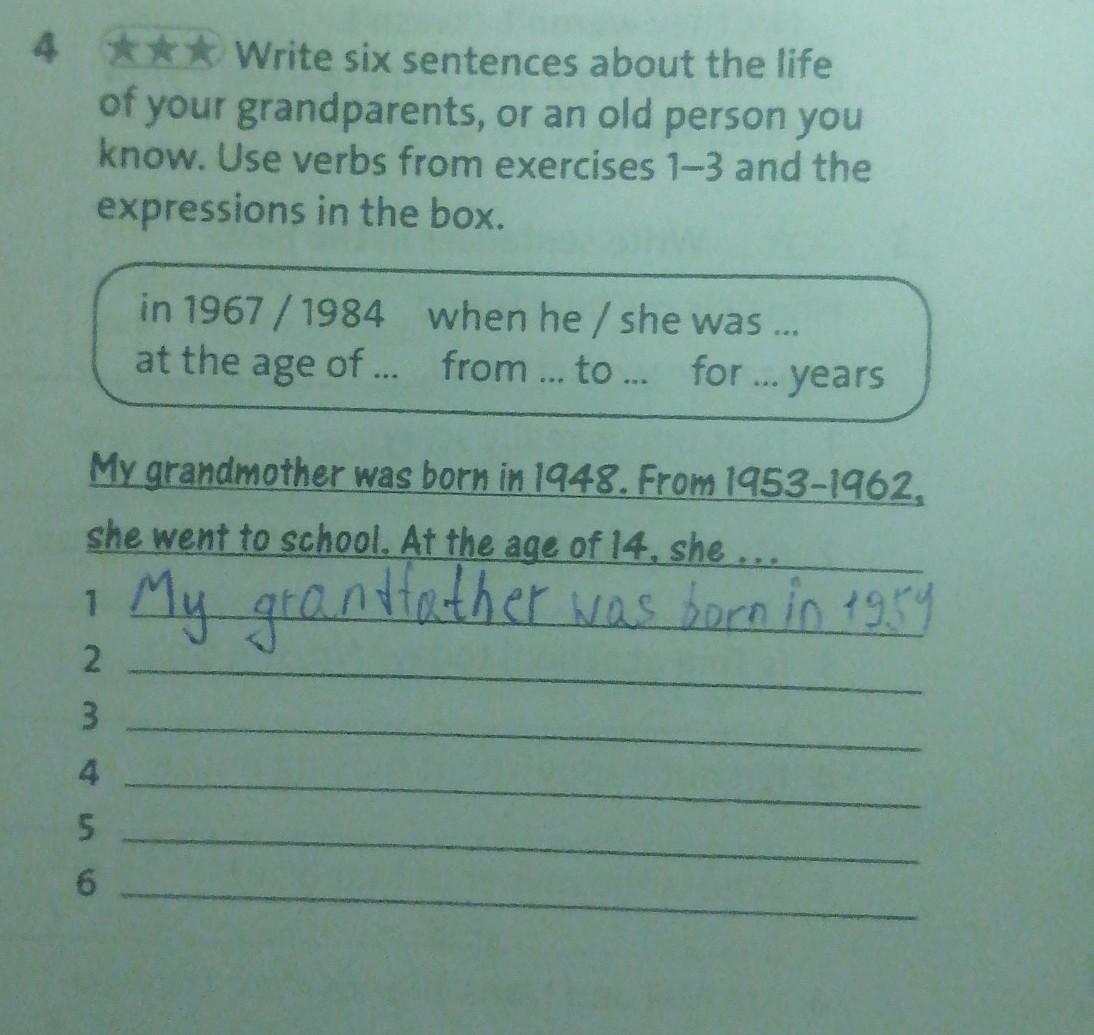 4 ★★★ Write six sentences about the life
of your grandparents, or an old person you
know. Use verbs from exercises 1–3 and the
expressions in the box.
in 1967 / 1984 when he / she was ...
at the age of ... from ... to ... for ... years
My grandmother was born in 1948. From 1953–1962,
she went to school. At the age of 14, she ...
1 My grandfather was born in 1959
2
3
4
5
6